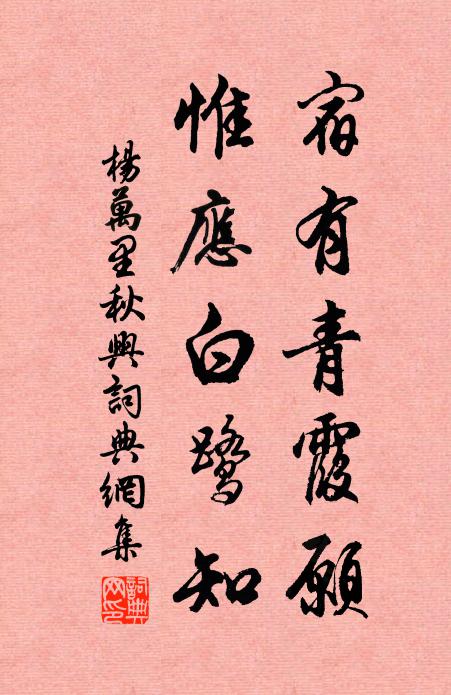 宿有青霞願
惟應白鷺知
楊萬里秋興詞典網集
詞典網印